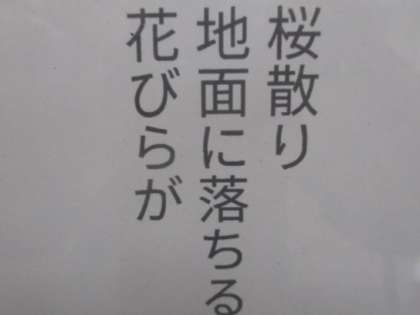 桜散り
地面に落ちる
花びらが